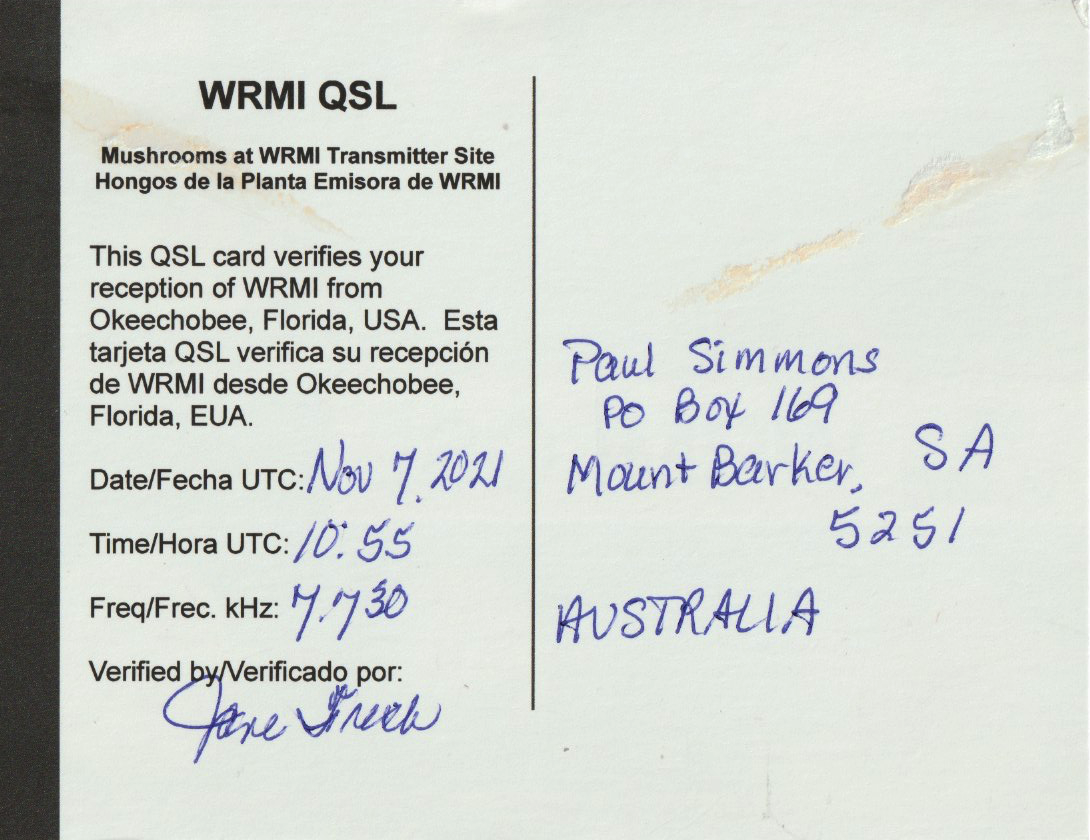 WRMI QSL
Mushrooms at WRMI Transmitter Site
Hongos de la Planta Emisora de WRMI
This QSL card verifies your
reception of WRMI from
Okeechobee, Florida, USA. Esta
tarjeta QSL verifica su recepción
de WRMI desde Okeechobee,
Florida, EUA.
Date/Fecha UTC: Nov 7, 2021
Time/Hora UTC: 10:55
Freq/Frec. kHz: 7.730
Verified by/Verificado por:
Jane
Paul Simmons
PO Box 169
Mount Barker, SA
5251
AUSTRALIA